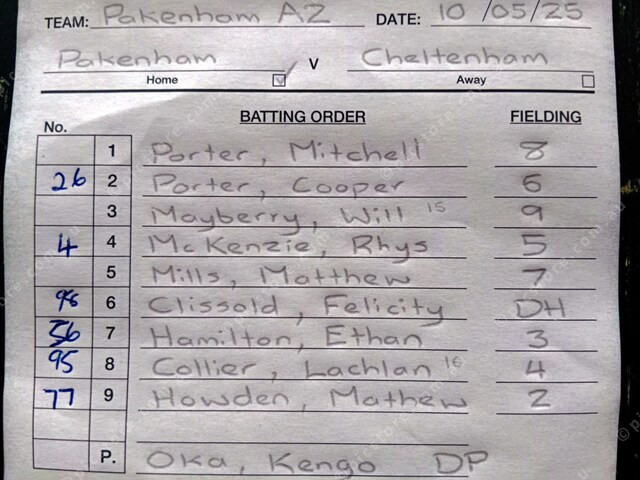 TEAM: Pakenham A2 DATE: 10/05/25
Pakenham v Cheltenham
Home Away
No. BATTING ORDER FIELDING
1 Porter, Mitchell 8
26 2 Porter, Cooper 6
3 Mayberry, Will 15 9
4 4 McKenzie, Rhys 5
5 Mills, Matthew 7
98 6 Clissold, Felicity DH
56 7 Hamilton, Ethan 3
95 8 Collier, Lachlan 16 4
77 9 Howden, Mathew 2
P. Oka, Kengo DP